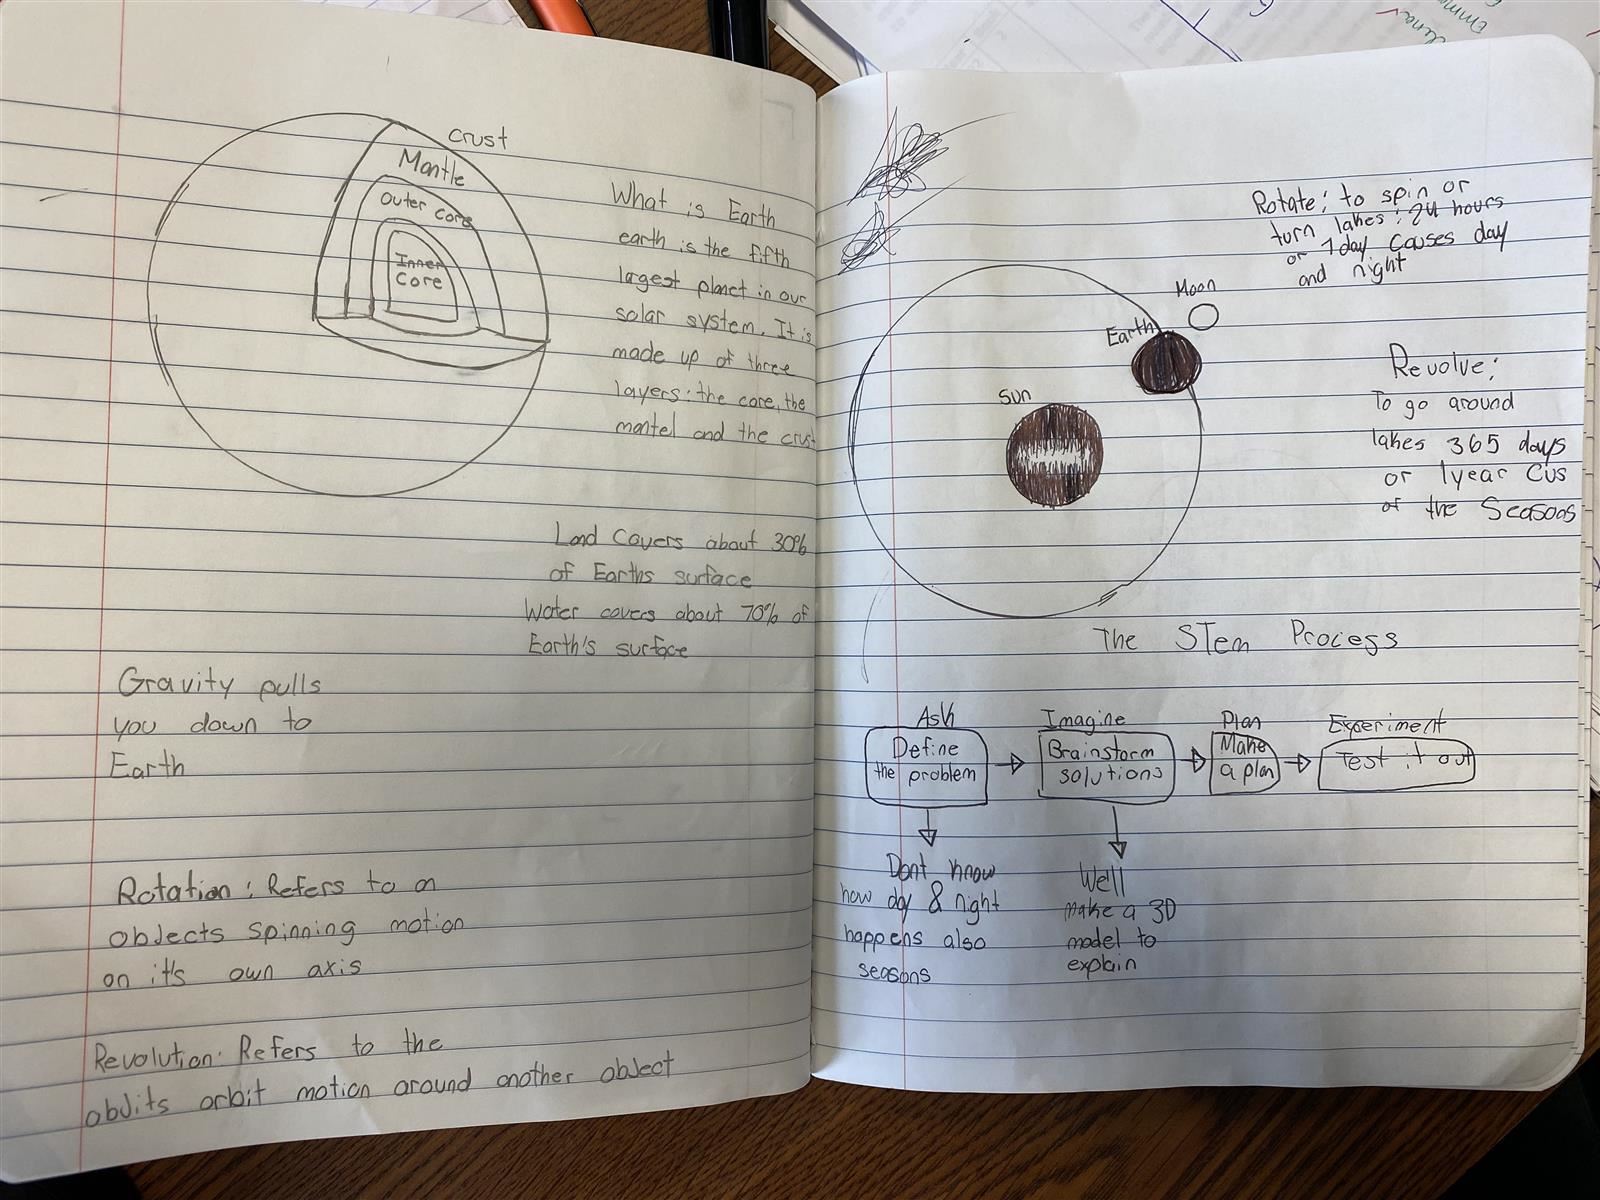 Crust
Mantle
Outer core
Inner
Core
What is Earth
earth is the fifth
largest planet in our
solar system. It is
made up of three
layers: the core, the
mantel and the crust
Land Covers about 30%
of Earths surface
Water covers about 70% of
Earth's surface
Gravity pulls
you down to
Earth
Rotation: Refers to an
objects spinning motion
on it's own axis
Revolution: Refers to the
obdits orbit motion around another object
Rotate: to spin or
turn takes: 24 hours
or 1 day causes day
and night
Moon
Earth
Sun
Revolve:
To go around
takes 365 days
or 1 year Cus
of the Seasons
The STem Process
Ask
Define
the problem
Imagine
Brainstorm
solutions
Plan
Make
a plan
Experiment
Test it out
Dont know
how day & night
happens also
seasons
We'll
make a 3D
model to
explain